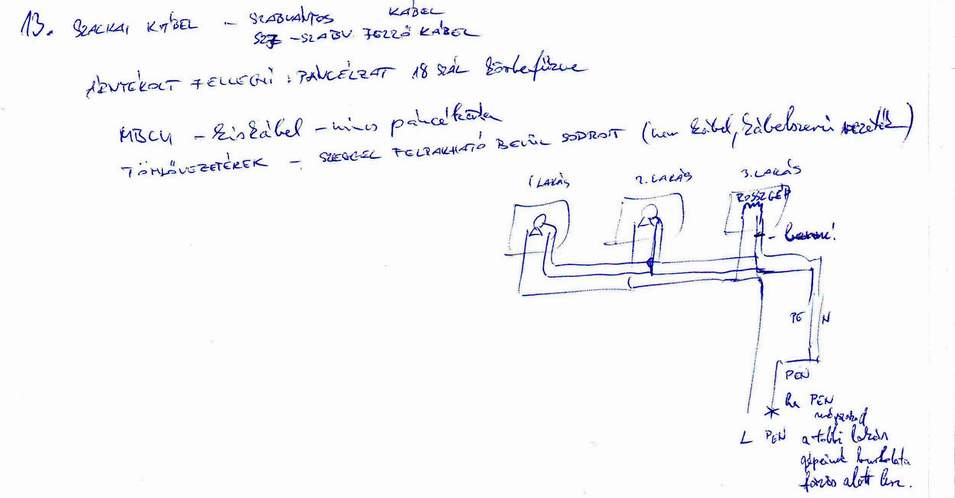 13. SZACKAI KÁBEL – SZABVÁNYOS KÁBEL
SZ – SZABV JELZŐ KÁBEL
JELLEGŰ : PÁNCÉLZAT 18 SZÁL körbefűzve
MBCU – kiskábel – nincs páncélozva
TÖMLŐVEZETÉKEK – SZEGGEL FELRAKHATÓ BEVÜL SODROTT (nem kábel, kábelszerű vezeték)
1 LAKÁS 2. LAKÁS 3. LAKÁS
ROSSZ GÉP
PE N
PEN
ha PEN
megszakad
L PEN a többi lakás
gépeinek burkolata
fázis alatt lesz.